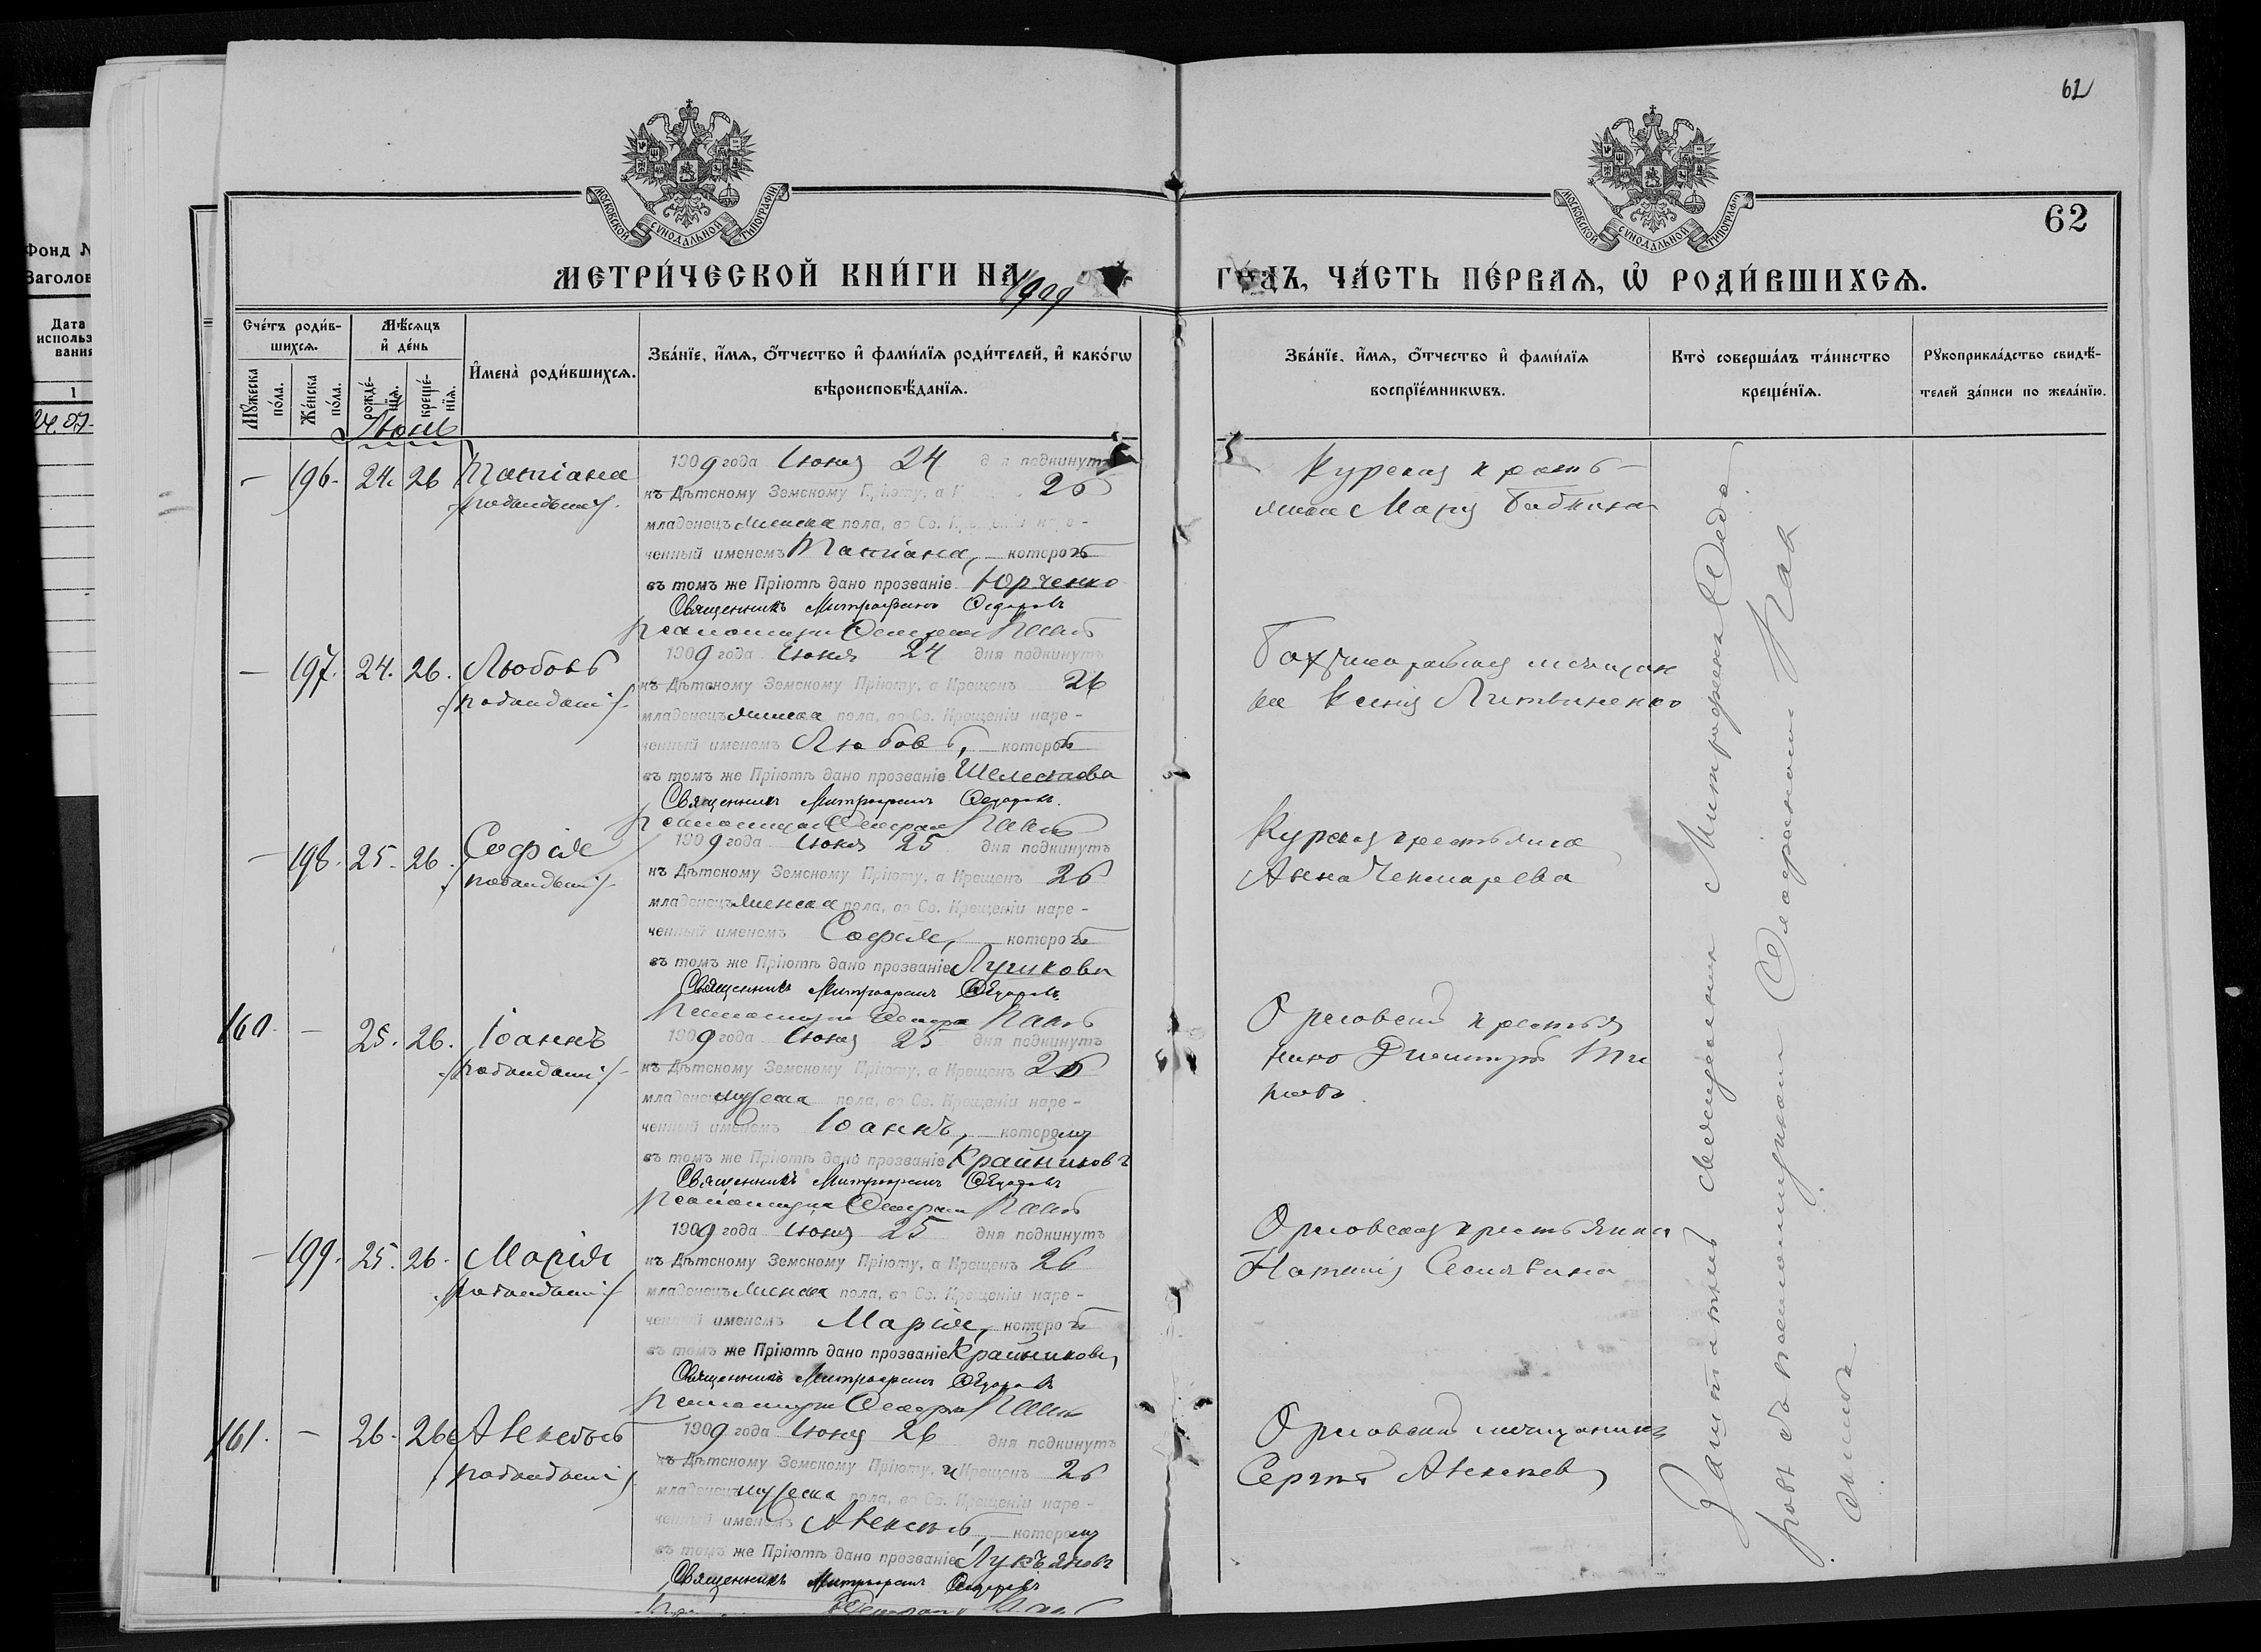 62
62
МОСКОВСКОЙ СѴНОДАЛЬНОЙ ТИПОГРАФІИ
МОСКОВСКОЙ СѴНОДАЛЬНОЙ ТИПОГРАФІИ
МЕТРИ́ЧЕСКОЙ КНИ́ГИ НА 1909
ГО́ДЪ, ЧА́СТЬ ПЕ́РВАѦ, Ѡ҆ РОДИ́ВШИХСѦ.
Фонд №
Заголов
Дата
использ
вания
1
Сче́тъ роди́в-
шихсѧ.
Мꙋ́жеска
по́ла.
Же́нска
по́ла.
Мѣ́сѧцъ
и҆ де́нь
рожде́-
нїѧ.
креще́-
нїѧ.
И҆мена̀ роди́вшихсѧ.
Зва́нїе, и҆́мѧ, ѻ҆́тчество и҆ фами́лїѧ роди́телей, и҆ како́гѡ
вѣроисповѣ́данїѧ.
Зва́нїе, и҆́мѧ, ѻ҆́тчество и҆ фами́лїѧ
воспрїе́мникѡвъ.
Кто̀ соверша́лъ та́инство
креще́нїѧ.
Рꙋкоприкла́дство свидѣ́-
телей за́писи по жела́нїю.
Іюнь
— 196. 24. 26 Татіана
1909 года Іюня 24 дня подкинутъ
къ Дѣтскому Земскому Пріюту, а Крещенъ 26
младенецъ женска пола, во Св. Крещеніи наре-
ченный именемъ Татіана, которой
въ томъ же Пріютѣ дано прозваніе Юрченко
Священникъ Митрофанъ Ѳедоровъ
Курская кресть-
янка Марія Бабкина
— 197. 24. 26. Любовь
1909 года Іюня 24 дня подкинутъ
къ Дѣтскому Земскому Пріюту, а Крещенъ 26
младенецъ женска пола, во Св. Крещеніи наре-
ченный именемъ Любовь, которой
въ томъ же Пріютѣ дано прозваніе Шелестова
Священникъ Митрофанъ Ѳедоровъ.
мѣщан
ка Ксенія Литвиненко
— 198. 25. 26. Софія
1909 года Іюня 25 дня подкинутъ
къ Дѣтскому Земскому Пріюту, а Крещенъ 26
младенецъ женска пола, во Св. Крещеніи наре-
ченный именемъ Софія, которой
въ томъ же Пріютѣ дано прозваніе
Священникъ Митрофанъ Ѳедоровъ
Курская крестьянка
Анна Чекмарева
160. — 25. 26. Іоаннъ
1909 года Іюня 25 дня подкинутъ
къ Дѣтскому Земскому Пріюту, а Крещенъ 26
младенецъ мужеска пола, во Св. Крещеніи наре-
ченный именемъ Іоаннъ, которому
въ томъ же Пріютѣ дано прозваніе Крайниковъ
Священникъ Митрофанъ Ѳедоровъ
Орловскій крестья
нинъ Димитрій Ти
товъ.
— 199. 25. 26. Марія
1909 года Іюня 25 дня подкинутъ
къ Дѣтскому Земскому Пріюту, а Крещенъ 26
младенецъ женска пола, во Св. Крещеніи наре-
ченный именемъ Марія, которой
въ томъ же Пріютѣ дано прозваніе Крайникова
Священникъ Митрофанъ Ѳедоровъ
Орловская крестьянка
Наталія
161. — 26. 26 Алексѣй
1909 года Іюня 26 дня подкинутъ
къ Дѣтскому Земскому Пріюту, и Крещенъ 26
младенецъ мужеска пола, во Св. Крещеніи наре-
ченный именемъ Алексѣй, которому
въ томъ же Пріютѣ дано прозваніе Лукъяновъ
Священникъ Митрофанъ Ѳедоровъ
Орловскій мѣщанинъ
Сергѣй Алексѣевъ
священникъ Митрофанъ Ѳедо-
ровъ съ псаломщикомъ